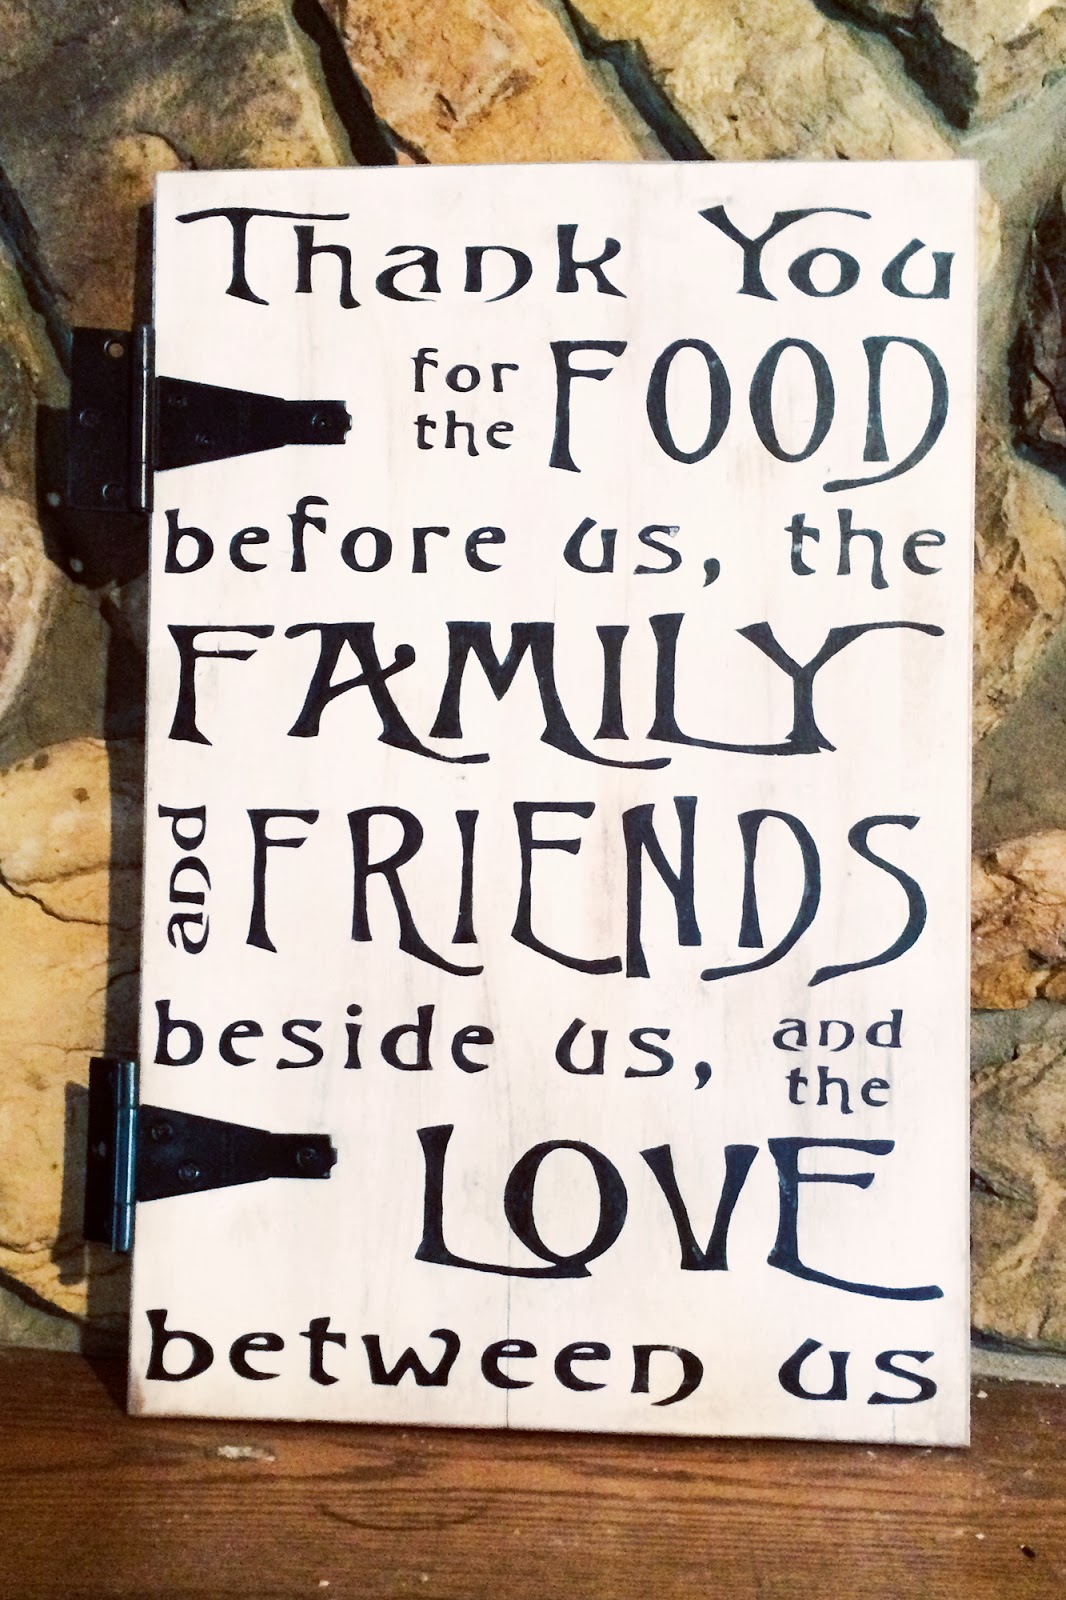 Thank You
for the FOOD
before us, the
FAMILY
and FRIENDS
beside us, and the
LOVE
between us